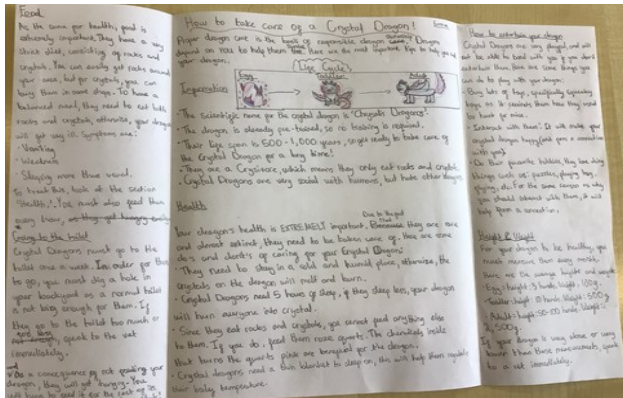 Food
As the same for health, food is
extremely important. They have a very
strict diet, consisting of rocks and
crystals. You can easily get rocks around
your area, but for crystals, you can
buy them in some shops. To have a
balanced meal, they need to eat both
rocks and crystals, otherwise, your dragon
will get very ill. Symptoms are:
- Vomiting
- Weakness
- Sleeping more than usual.
To treat this, look at the section
"Health". You must also feed them
every hour,
Going to the toilet
Crystal Dragons must go to the
toilet once a week. In order for them
to go, you must dig a hole in
your backyard as a normal toilet
is not big enough for them. If
they go to the toilet too much or
speak to the vet
immediately.
As a consequence of not feeding your
dragon, they will get hungry. You
will have to feed it for the rest of its
How to take care of a Crystal Dragon!
Proper dragon care is the basis of responsible dragon
depend on you to help them Here are the most important tips to help you and
your dragon.
Life Cycle
Egg
Toddler
Adult
Information
- The scientific name for the crystal dragon is "Chrysalis Dragons".
- The dragon is already pre-trained, so no training is required.
- Their life span is 500-1,000 years, so get ready to take care of
the Crystal Dragon for a long time!
- They are a Crysivore, which means they only eat rocks and crystals.
- Crystal Dragons are very social with humans, but hate other dragons
Health
Your dragon's health is EXTREMELY important. Because they are rare
and almost extinct, they need to be taken care of. Here are some
do's and dont's of caring for your Crystal Dragon:
- They need to stay in a cold and humid place, otherwise, the
crystals on the dragon will melt and burn.
- Crystal Dragons need 5 hours of sleep, if they sleep less, your dragon
will turn everyone into crystal.
- Since they eat rocks and crystals, you cannot feed anything else
to them. If you do, feed them rose quartz. The chemicals inside
that turns the quartz pink are beneficial for the dragon.
- Crystal dragons need a thin blanket to sleep on, this will help them regulate
their body temperature.
How to entertain your dragon
Crystal Dragons are very playful, and will
not be able to bond with you if you don't
entertain them. Here are some things you
can do to play with your dragon:
- Buy lots of toys, specifically squeaky
toys, as it reminds them how they used
to hunt for mice.
- Interact with them! It will make your
crystal dragon happy (and form a connection
with you).
- Do their favourite hobbies, they love doing
things such as: puzzles, playing tag,
flying, etc. For the same reason as why
you should interact with them, it will
help form a connection.
Height & Weight
For your dragon to be healthy, you
must measure them every month.
Here are the average heights and weights:
- Egg: height: 3 hands, Weight: 180g.
- Toddler: height: 10 hands, Weight: 500g
- Adult: height: 50-100 hands, Weight:
2,500g.
If your dragon is way above or way
lower than these measurements, speak
to a vet immediately.